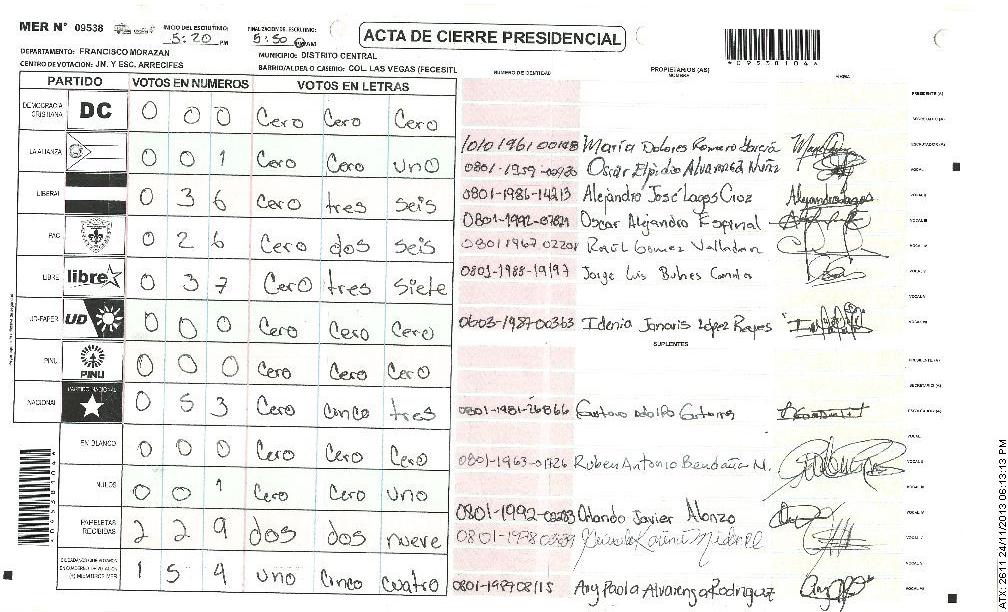 MER Nº 09538 INICIO DEL ESCRUTINIO: 5:20 PM FINALIZACION DE ESCRUTINIO: 5:50 AM
ACTA DE CIERRE PRESIDENCIAL
*09538104*
DEPARTAMENTO: FRANCISCO MORAZAN MUNICIPIO: DISTRITO CENTRAL
CENTRO DE VOTACION: JN. Y ESC. ARRECIFES BARRIO/ALDEA O CASERIO: COL. LAS VEGAS (FECESITL
PARTIDO VOTOS EN NUMEROS VOTOS EN LETRAS NUMERO DE IDENTIDAD PROPIETARIOS (AS) NOMBRE FIRMA
PRESIDENTE (A)
DEMOCRACIA CRISTIANA DC 0 0 0 Cero Cero Cero
SECRETARIO (A)
LA ALIANZA 0 0 1 Cero Cero uno
María Dolores Romero García ESCRUTADOR (A)
Oscar Elpidio Alvarez Nuñz VOCAL I
LIBERAL 0 3 6 Cero tres seis
0801-1986-14213 Alejandro José Lagos Cruz Alejandro Lagos VOCAL II
Oscar Alejandro Espinal VOCAL III
PAC 0 2 6 Cero dos seis
Raúl Gomez Valladan VOCAL IV
LIBRE libre 0 3 7 Cero tres siete
0801-1988-19197 Jorge Luis VOCAL V
VOCAL VI
UD-FAPER UD 0 0 0 Cero Cero Cero
0603-198700363 Idenia Janaris López Reyes VOCAL VII
SUPLENTES
PINU PINU 0 0 0 Cero Cero Cero
PRESIDENTE (A)
SECRETARIO (A)
NACIONAL PARTIDO NACIONAL 0 5 3 Cero cinco tres
0801-1981-26866 Gustavo Adolfo ESCRUTADOR (A)
VOCAL I
EN BLANCO 0 0 0 Cero Cero Cero
0801-1963-01726 Ruben Antonio Bendaña M. VOCAL II
NULOS 0 0 1 Cero Cero uno
VOCAL III
PAPELETAS RECIBIDAS 2 2 9 dos dos nueve
Orlando Javier Alonzo VOCAL IV
VOCAL V
VOCAL VI
CIUDADANOS QUE VOTARON EN CUADERNO DE VOTACION (+) MIEMBROS MER 1 5 4 uno cinco cuatro
0801-198708115 Any Paola Alvarenga Rodriguez VOCAL VII
*09538104*
ATX-2611 24/11/2013 06:13:13 PM